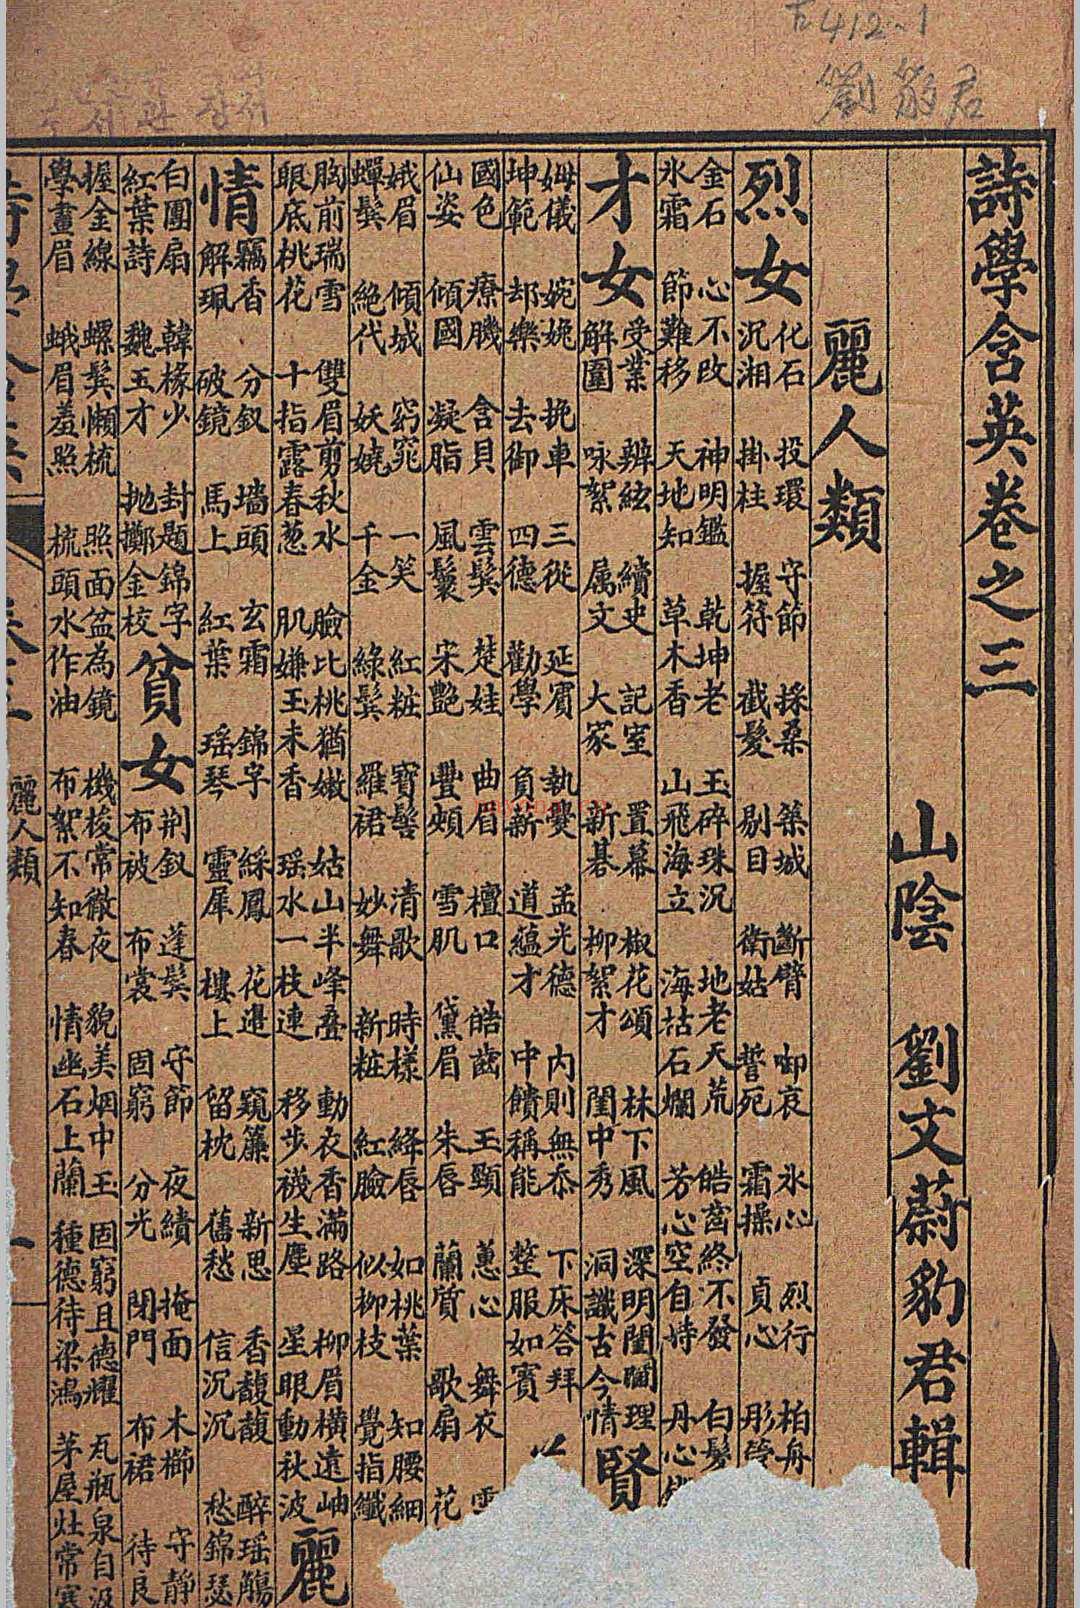 古412-1
劉豹君
詩學含英卷之三
山陰 劉文蔚豹君輯
麗人類
烈女 化石 投環 守節 採桑 築城 斷臂 啣哀 氷心 烈行 柏舟
沉湘 掛柱 握符 截髮 剔目 衛姑 誓死 霜操 貞心 彤管
金石 心不改 神明鑑 乾坤老 玉碎珠沉 地老天荒 皓齒終不發 白髮
氷霜 節難移 天地知 草木香 山飛海立 海枯石爛 芳心空自持 丹心
才女 受業 辨絃 續史 記室 置幕 椒花頌 林下風 深明閨閫理
解圍 咏絮 属文 大家 新碁 柳絮才 閨中秀 洞識古今情 賢
姆儀 婉娩 挽車 三從 延賓 執爨 孟光德 內則無忝 下床答拜
坤範 却樂 去御 四德 勸學 負薪 道蘊才 中饋稱能 整服如賓
國色 療饑 含貝 雲鬓 楚娃 曲眉 檀口 皓齒 玉頸 蕙心 舞衣
仙姿 傾國 凝脂 風鬟 宋艷 豐頰 雪肌 黛眉 朱唇 蘭質 歌扇 花
娥眉 傾城 窈窕 一笑 紅粧 寶髻 清歌 時樣 絳唇 如桃葉 知腰細
蟬鬓 絶代 妖嬈 千金 綠鬓 羅裙 妙舞 新粧 紅臉 似柳枝 覺指纖
胸前瑞雪 雙眉剪秋水 臉比桃猶嫩 姑山半峰叠 動衣香滿路 柳眉横遠岫
眼底桃花 十指露春葱 肌嫌玉未香 瑶水一枝連 移步襪生塵 星眼動秋波 麗
情 竊香 分釵 墻頭 玄霜 錦字 綵鳳 花邊 窺簾 新思 香馥馥 醉瑶觴
解珮 破鏡 馬上 紅葉 瑶琴 靈犀 樓上 留枕 舊愁 信沉沉 愁錦瑟
白團扇 韓椽少 封題錦字 貧女 荆釵 蓬鬓 守節 夜績 掩面 木櫛 守靜
紅葉詩 魏玉才 抛擲金梭 布被 布裳 固窮 分光 閉門 布裙 待良
握金線 螺鬓懶梳 照面盆為鏡 機梭常徹夜 貌美烟中玉 固窮且德耀 瓦瓶泉自汲
學畫眉 蛾眉羞照 梳頭水作油 布絮不知春 情幽石上蘭 種德待梁鴻 茅屋灶常寒
麗人類 一